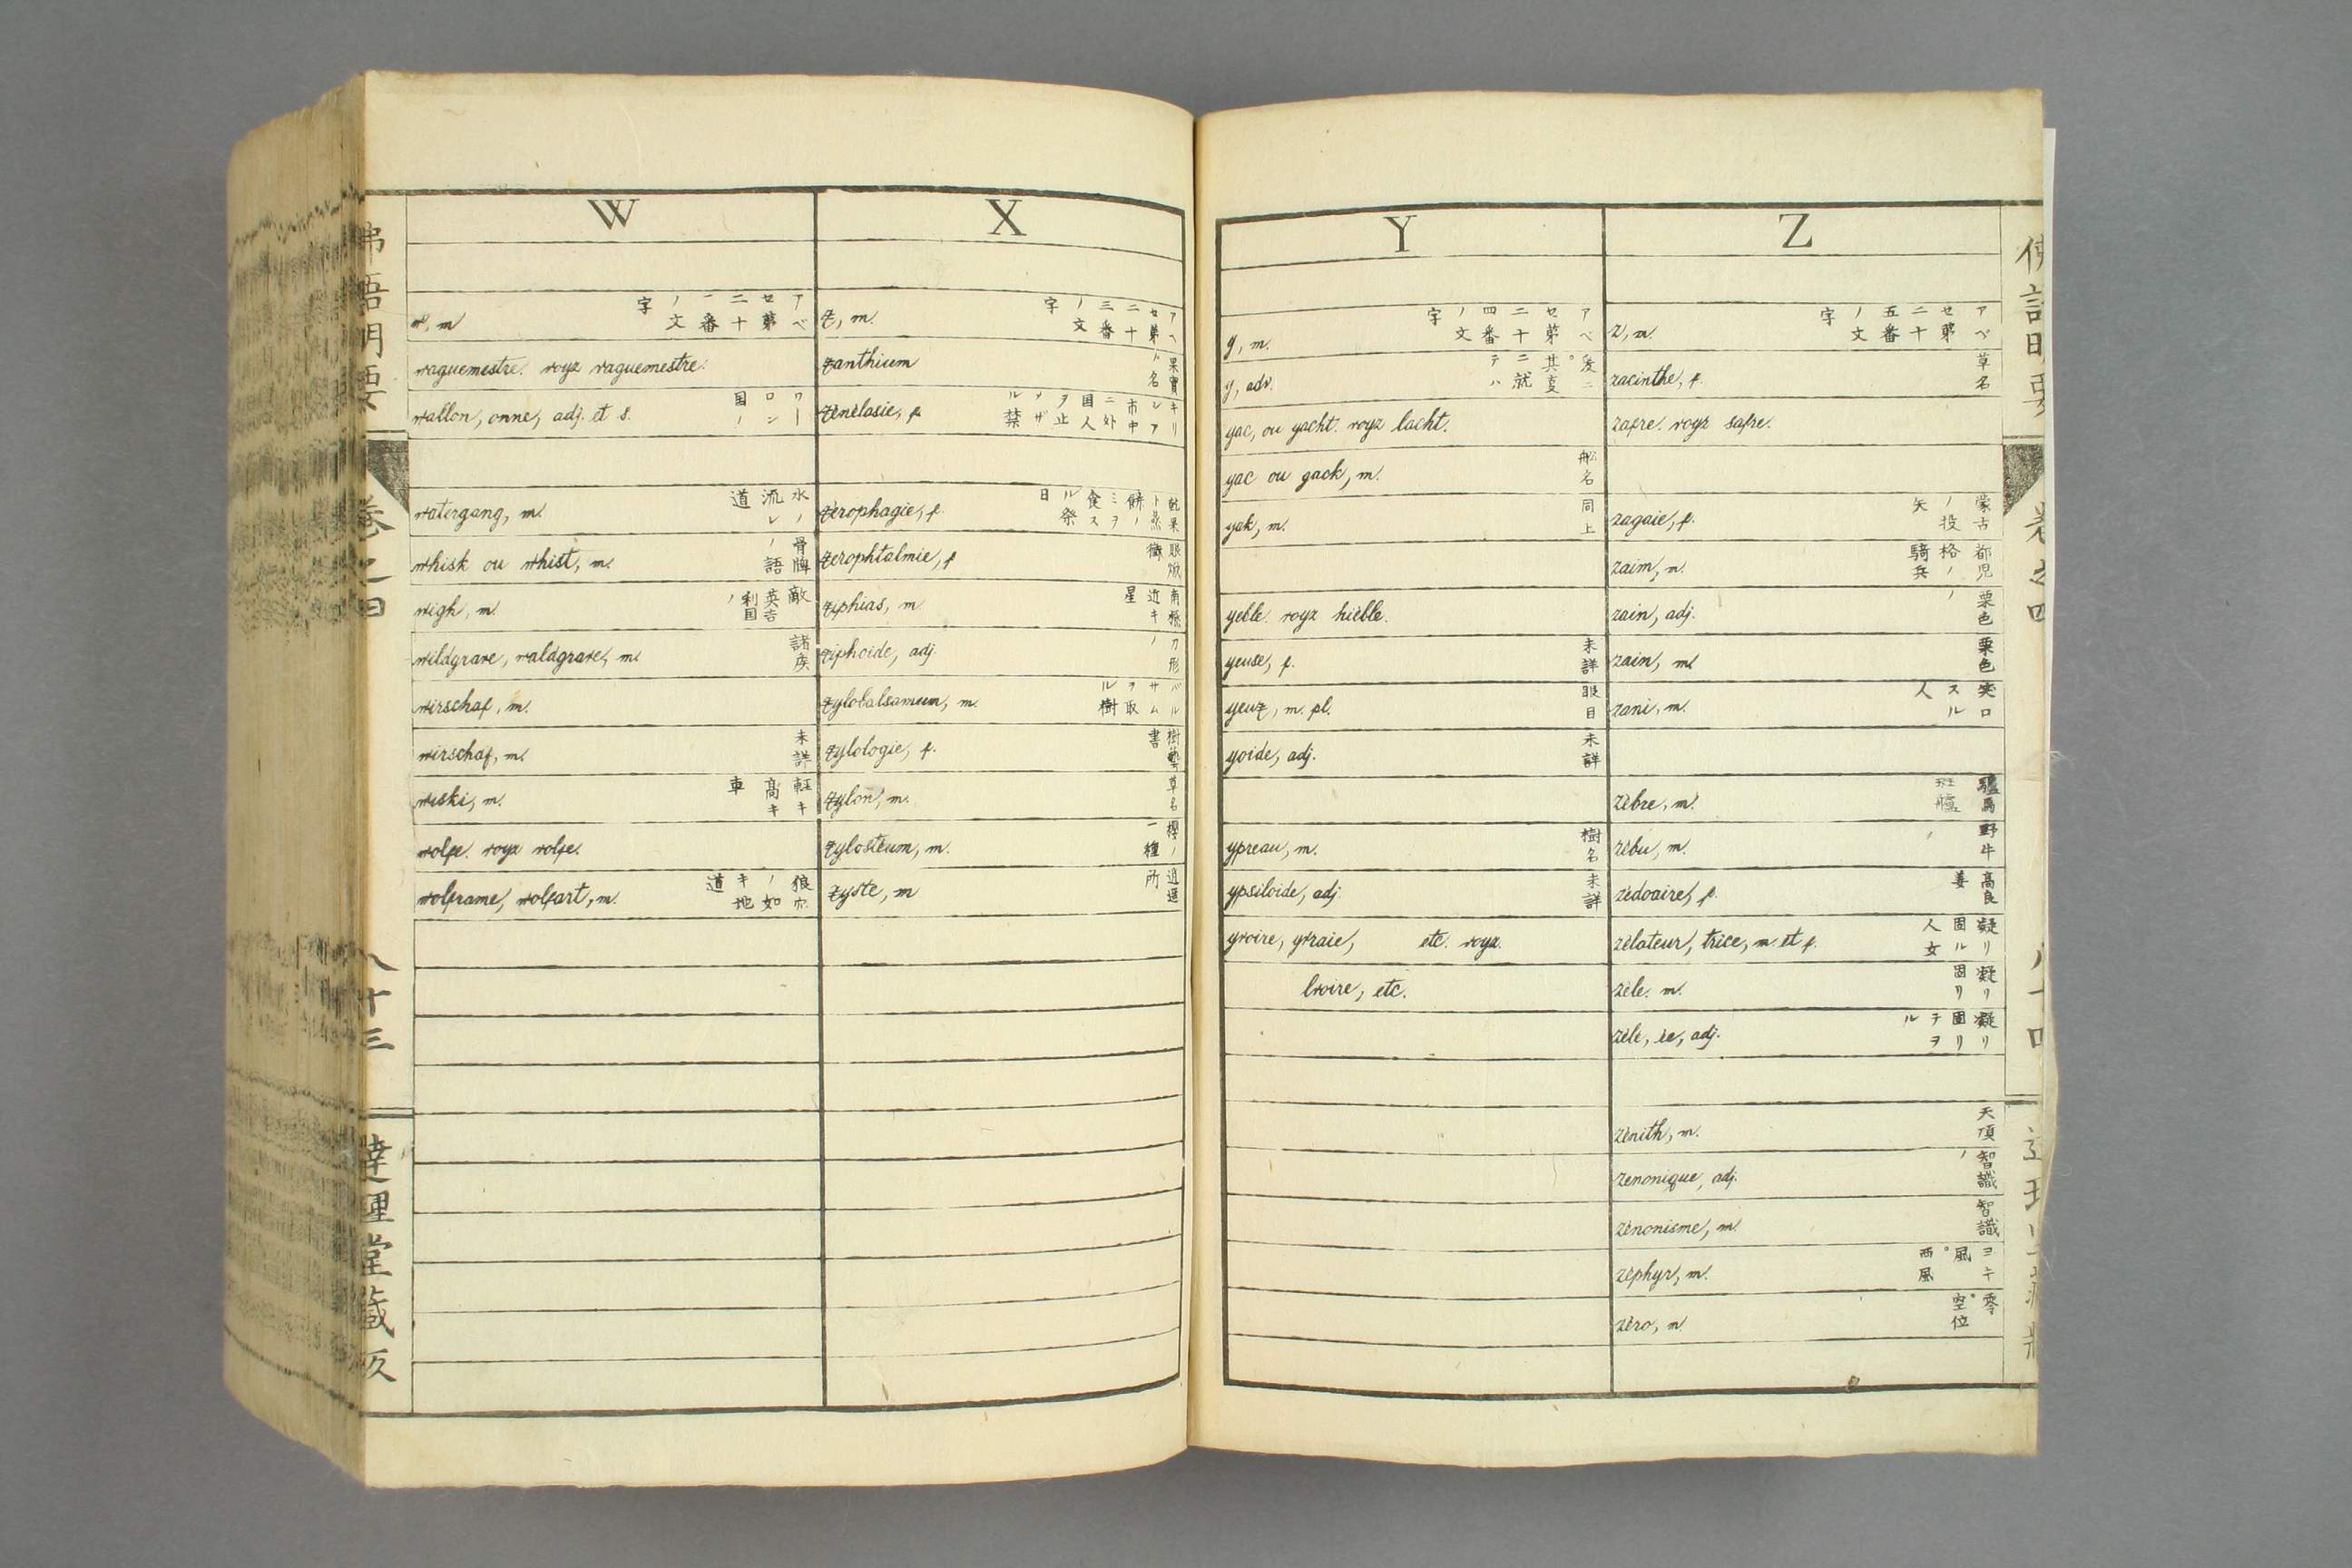 W
w, m. アベセ第二十一番ノ文字
waguemestre. voyz vaguemestre.
wallon, onne, adj. et s. ワーロン国ノ
watergang, m. 水ノ流レ道
whisk ou whist, m. 骨牌ノ語
wigh, m. 敵英吉利国ノ
wildgrave, waldgrave, m. 諸矦
wirschaf, m.
wirschaf, m. 未詳
wiski, m. 軽キ高キ車
wolfe. voyz volfe.
wolframe, wolfart, m. 狼穴ノ如キ地道
X
x, m. アベセ第二十三番ノ文字
xanthium 果實ノ名
xénélasie, f.
xérophagie, f.
xérophtalmie, f.
xiphias, m 南極近キ星
xiphoide, adj. 刀形ノ
xylobalsamum, m. バルサムヲ取ル樹
xylologie, f. 樹藝書
xylon, m. 草名
xylosteum, m. 櫻ノ一種
xyste, m 逍遥所
Y
y, m. アベセ第二十四番ノ文字
y, adv. 爰ニ。其変ニ就テハ
yac, ou yacht. voyz lacht.
yac ou gack, m. 舩名
yak, m. 同上
yeble. voyz hièble.
yeuse, f. 未詳
yeux, m. pl. 眼目
yoide, adj. 未詳
ypreau, m. 樹名
ypsiloide, adj. 未詳
yvoire, yvraie, etc. voyz.
lvoire, etc.
Z
z, m. アベセ第二十五番ノ文字
zacinthe, f. 草名
zafre. voyz safre.
zagaie, f. 蒙古ノ投矢
zaim, m. 都児格ノ騎兵
zain, adj. 栗色ノ
zain, m. 栗色
zani, m. 突口スル人
zèbre, m. 驢馬 斑驢
zébu, m. 野牛
zédoaire, f. 高良姜
zélateur, trice, m. et f. 凝リ固ル人女
zèle. m. 凝リ固リ
zélé, ée, adj. 凝リ固リテヲル
zénith, m. 天頂
zenonique, adj. 智識ノ
zénonisme, m. 智識
zéphyr, m. ヨキ風。西風
zéro, m. 零。空位
八十三